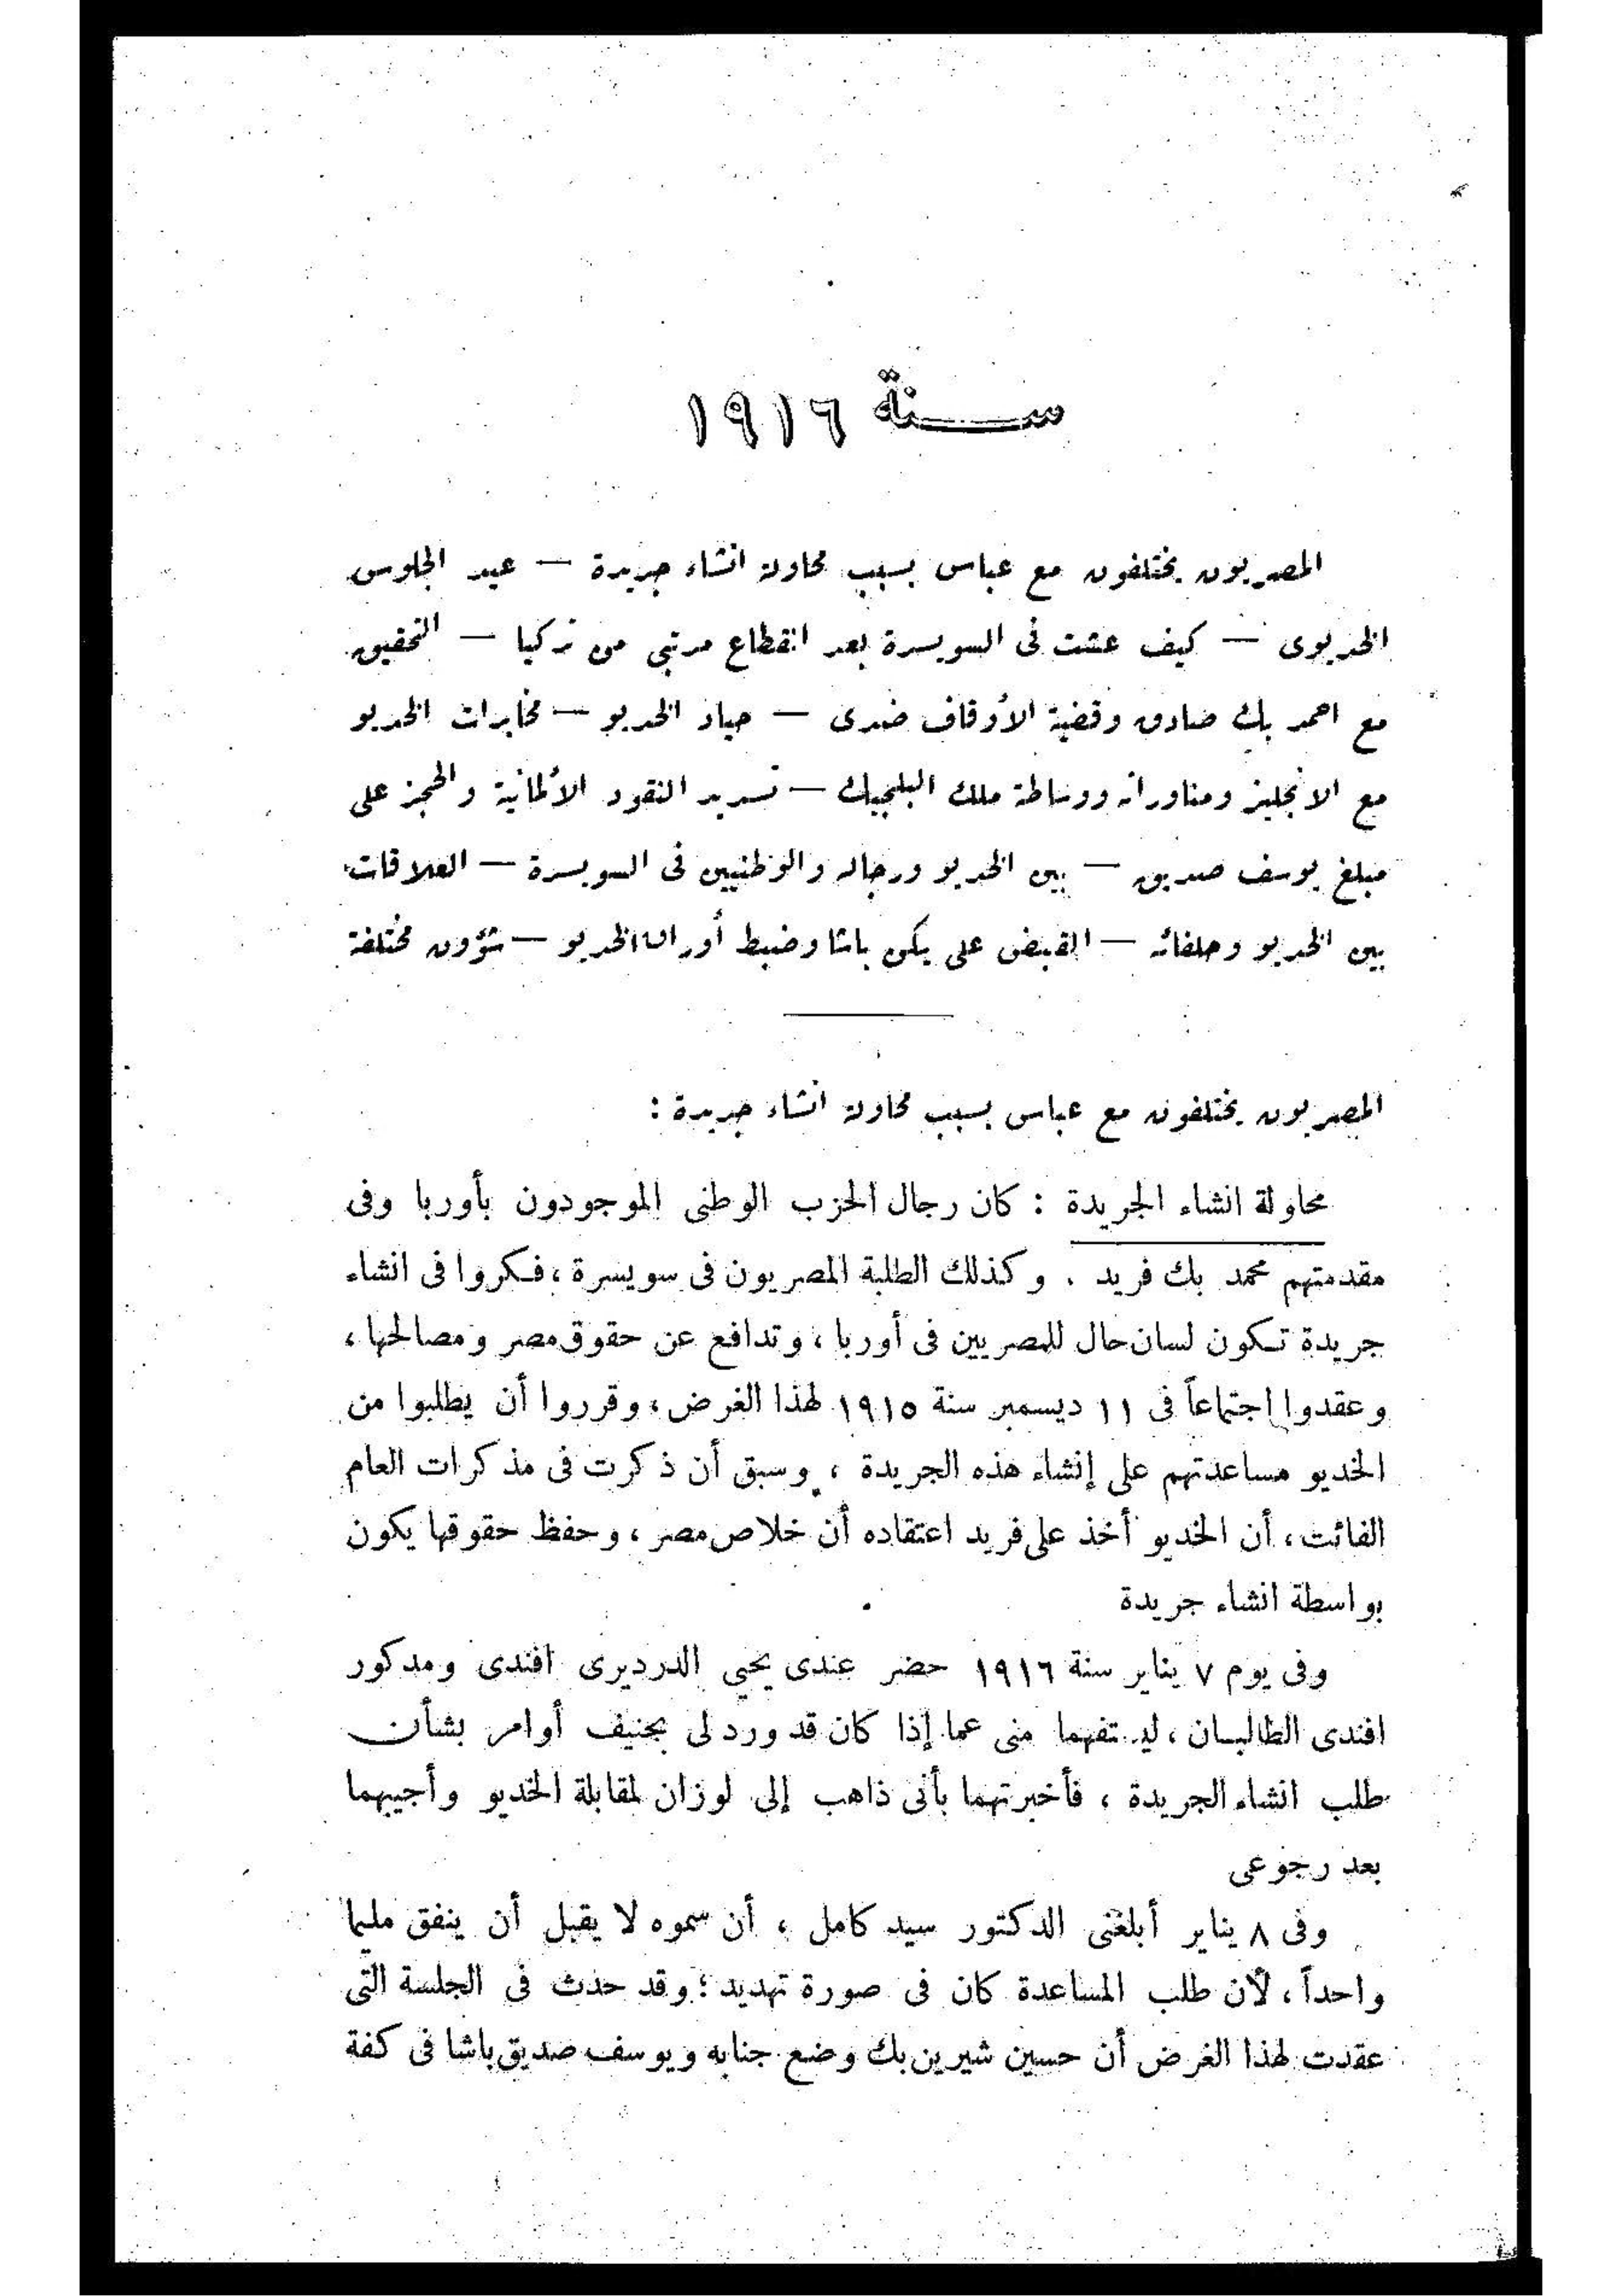 سنة ١٩١٦
المصريون يختلفون مع عباس بسبب محاولة انشاء جريدة — عيد الجلوس
الخديوى — كيف عشت فى السويسرة بعد انقطاع مرتبى من تركيا — التحقيق
مع احمد بك صادق وقضية الأوقاف ضدى — حياد الخديو — مخابرات الخديو
مع الانجليز ومناوراته ووساطة ملك البلجيك — تسديد النقود الألمانية والحجز على
مبلغ يوسف صديق — بين الخديو ورجاله والوطنيين فى السويسرة — العلاقات
بين الخديو وحلفائه — القبض على يكن باشا وضبط أوراق الخديو — شؤون مختلفة
المصريون يختلفون مع عباس بسبب محاولة انشاء جريدة :
محاولة انشاء الجريدة : كان رجال الحزب الوطنى الموجودون بأوربا وفى
مقدمتهم محمد بك فريد . وكذلك الطلبة المصريون فى سويسرة ، فكروا فى انشاء
جريدة تكون لسان حال للمصريين فى أوربا ، وتدافع عن حقوق مصر ومصالحها ،
وعقدوا اجتماعاً فى ١١ ديسمبر سنة ١٩١٥ لهذا الغرض ، وقرروا أن يطلبوا من
الخديو مساعدتهم على إنشاء هذه الجريدة ، وسبق أن ذكرت فى مذكرات العام
الفائت ، أن الخديو أخذ على فريد اعتقاده أن خلاص مصر ، وحفظ حقوقها يكون
بواسطة انشاء جريدة
وفى يوم ٧ يناير سنة ١٩١٦ حضر عندى يحيي الدرديرى افندى ومدكور
افندى الطالبان ، ليستفهما منى عما إذا كان قد ورد لى بجنيف أوامر بشأن
طلب انشاء الجريدة ، فأخبرتهما بأنى ذاهب إلى لوزان لمقابلة الخديو وأجيبهما
بعد رجوعى
وفى ٨ يناير أبلغنى الدكتور سيد كامل ، أن سموه لا يقبل أن ينفق مليما
واحداً ، لأن طلب المساعدة كان فى صورة تهديد ؛ وقد حدث فى الجلسة التى
عقدت لهذا الغرض أن حسين شيرين بك وضع جنابه ويوسف صديق باشا فى كفة